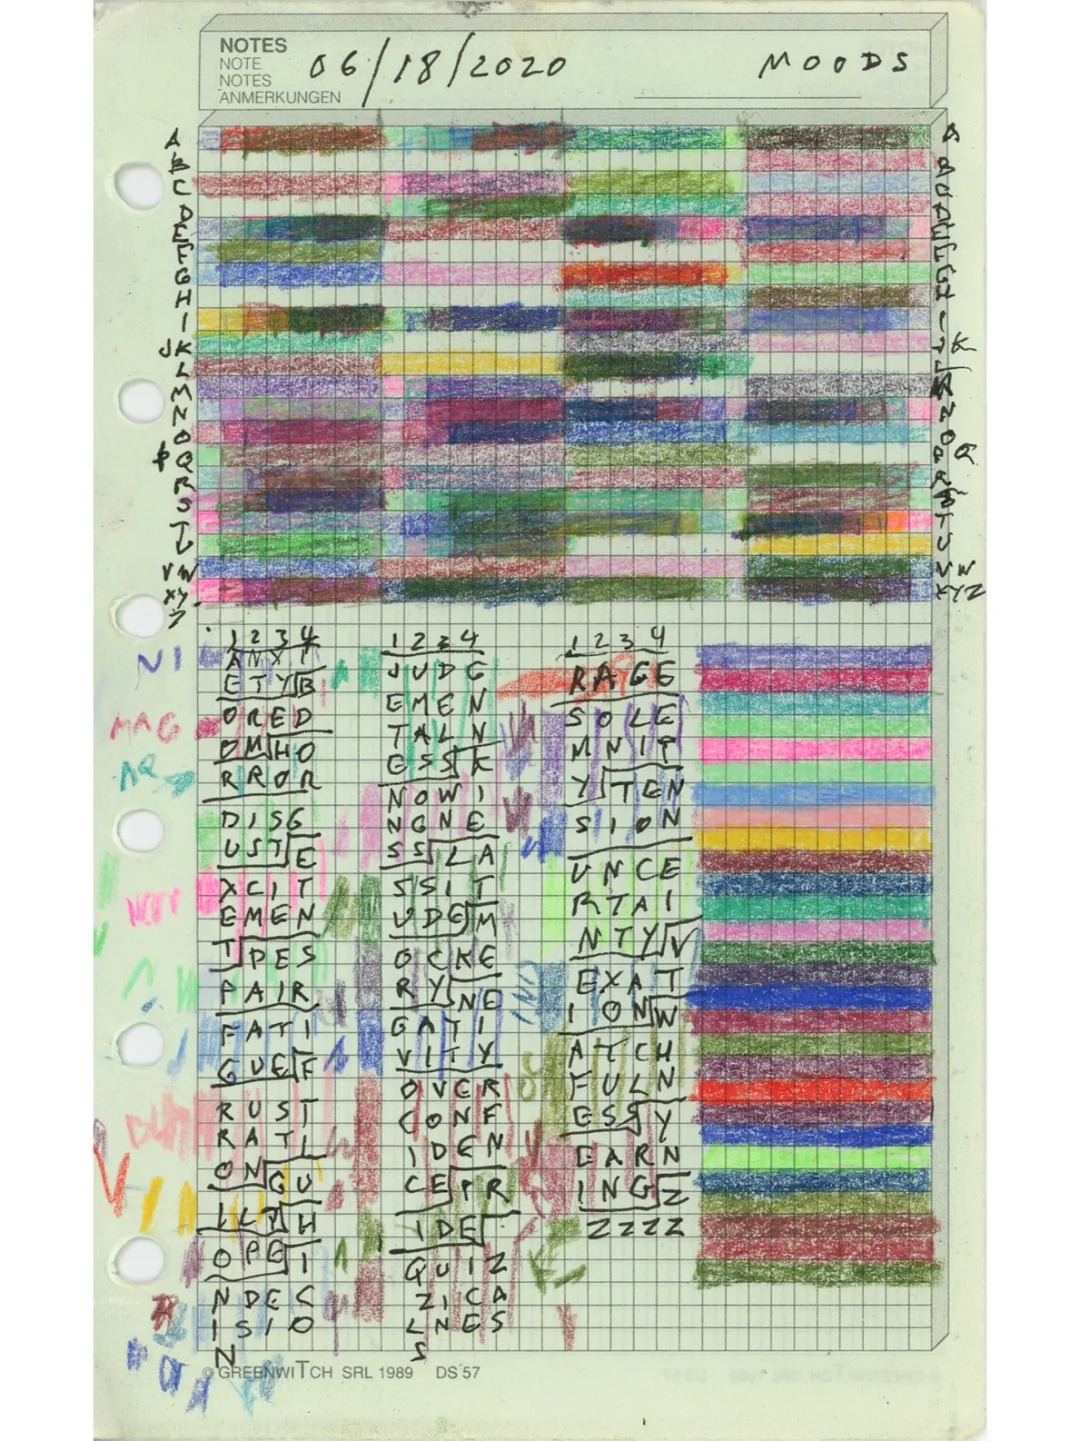 NOTES
NOTE
NOTES
ANMERKUNGEN
06/18/2020
MOODS
A
B
C
D
E
F
G
H
I
JK
L
M
N
O
PQ
R
S
T
U
VW
XY
Z
A
B
C
D
E
F
G
H
I
J K
L
N
O
P Q
R
T
U
V W
XYZ
NI
MAG
AQ
1 2 3 4
ANXI
ETYB
ORED
OMHO
RROR
DISG
USTE
XCIT
EMEN
TDES
PAIR
FATI
GUEF
RUST
RATI
ONGU
ILTH
OPEI
NDEC
ISIO
N
1 2 3 4
JUDG
EMEN
TALN
ESSK
NOWI
NGNE
SSLA
SSIT
UDEM
OCKE
RYNE
GATI
VITY
OVER
CONF
IDEN
CEPR
IDE
QUIZ
ZICA
LNES
S
1 2 3 4
RAGE
SOLE
MNIT
YTEN
SION
UNCE
RTAI
NTYV
EXAT
IONW
ATCH
FULN
ESSY
EARN
INGZ
ZZZZ
© GREENWITCH SRL 1989 DS 57